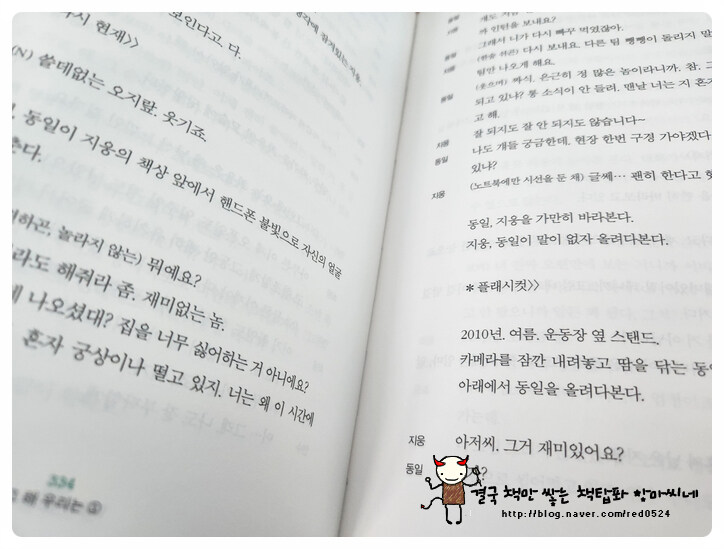 보인다고 다.
시 현재>>
(N) 쓸데없는 오지랖. 웃기죠.
동일이 지웅의 책상 앞에서 핸드폰 불빛으로 자신의 얼굴
춘다.
하곤, 놀라지 않는) 뭐예요?
라도 해줘라 좀. 재미없는 놈.
에 나오셨대? 집을 너무 싫어하는 거 아니에요?
혼자 궁상이나 떨고 있지. 너는 왜 이 시간에
334
해 우리는 ①
동일
개도 지금
까 인턴을 보내요?
그래서 니가 다시 빠꾸 먹였잖아.
지웅
(한숨 쉬곤) 다시 보내요. 다른 팀 뺑뺑이 돌리지 말
팀만 나오게 해요.
동일
(웃으며) 짜식. 은근히 정 많은 놈이라니까. 참. 그
되고 있냐? 통 소식이 안 들려. 맨날 너는 지 혼자
고 해.
지웅
잘 되지도 잘 안 되지도 않습니다~
동일
나도 걔들 궁금한데, 현장 한번 구경 가야겠다
있냐?
지웅
(노트북에만 시선을 둔 채) 글쎄… 괜히 한다고 했
동일, 지웅을 가만히 바라본다.
지웅, 동일이 말이 없자 올려다본다.
*플래시컷>>
2010년. 여름. 운동장 옆 스탠드.
카메라를 잠깐 내려놓고 땀을 닦는 동
아래에서 동일을 올려다본다.
지웅
아저씨. 그거 재미있어요?
동일
?
결국 책만 쌓는 책탑파 항마씨네
http://blog.naver.com/red0524